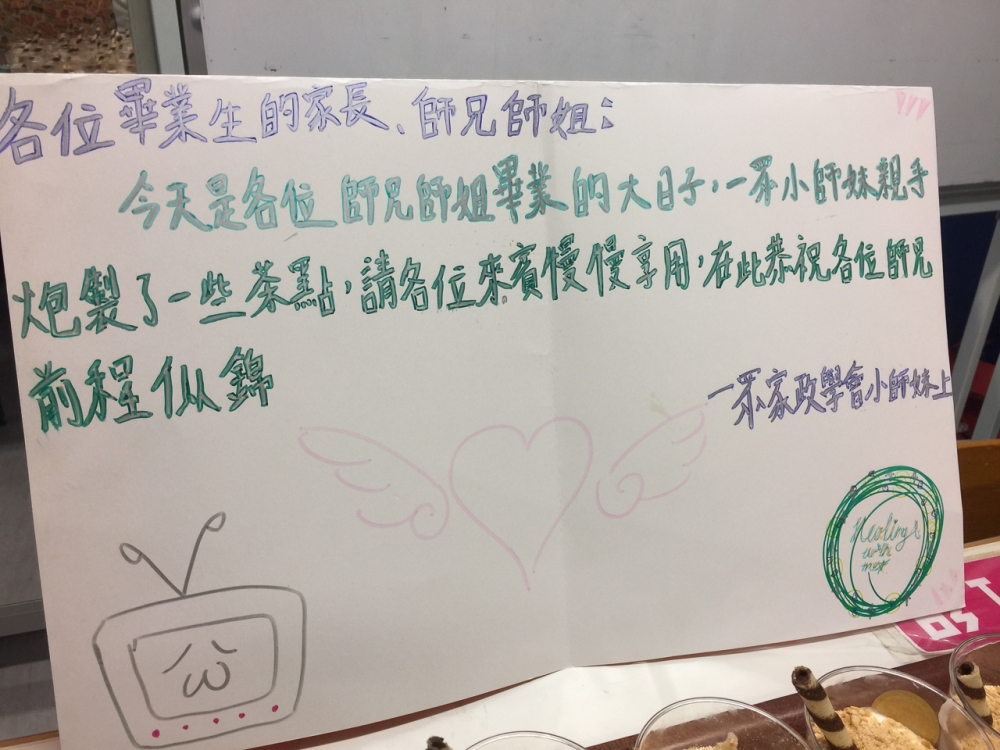 各位畢業生的家長、師兄師姐：
今天是各位師兄師姐畢業的大日子，一眾小師妹親手
炮製了一些茶點，請各位來賓慢慢享用，在此恭祝各位師兄
前程似錦
一眾家政學會小師妹上
Healing
with